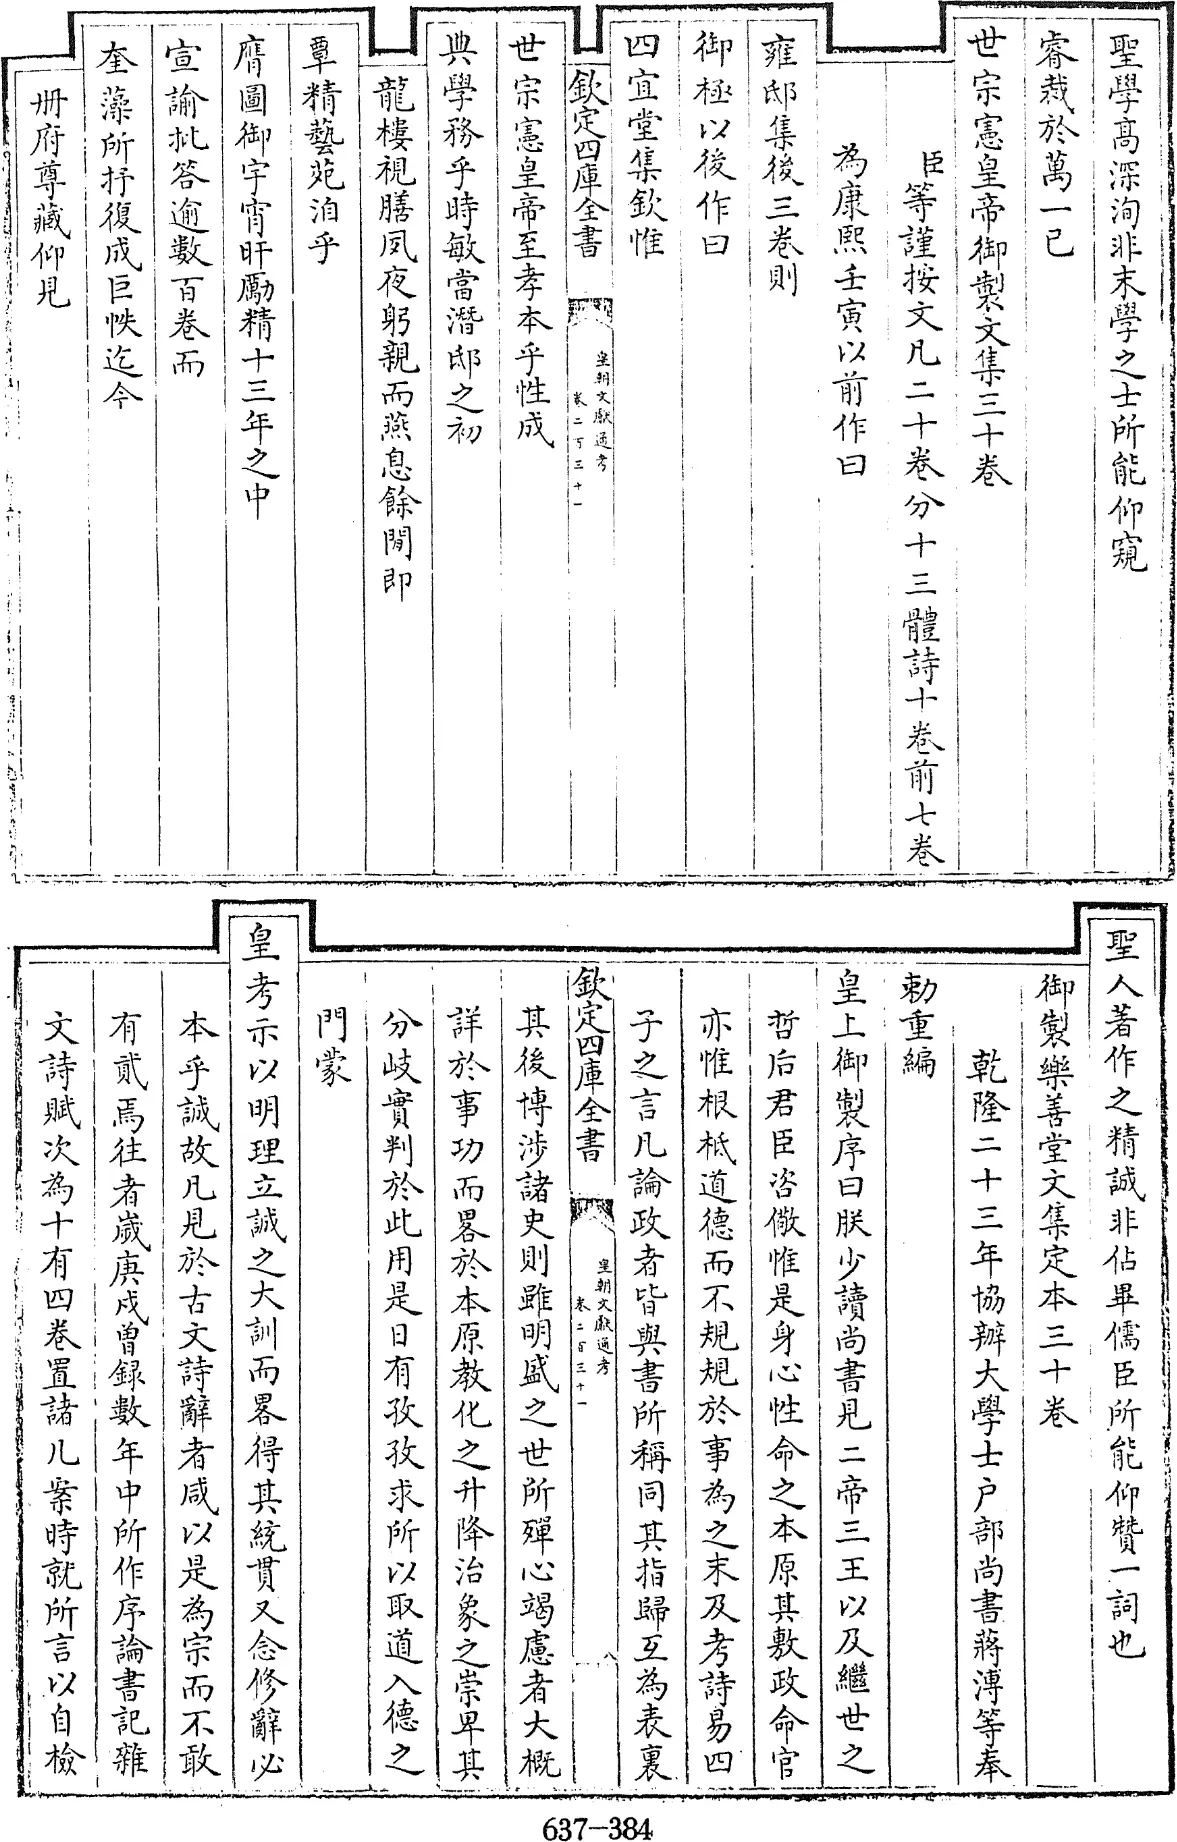 聖學高深洵非末學之士所能仰窺
睿裁於萬一已
世宗憲皇帝御製文集三十卷
臣等謹按文凡二十卷分十三體詩十卷前七卷
為康熙壬寅以前作曰
雍邸集後三卷則
御極以後作曰
四宜堂集欽惟
欽定四庫全書
皇朝文獻通考
卷二百三十一
世宗憲皇帝至孝本乎性成
典學務乎時敏當潛邸之初
龍樓視膳夙夜躬親而燕息餘閒即
覃精藝苑洎乎
膺圖御宇宵旰勵精十三年之中
宣諭批答逾數百卷而
奎藻所抒復成巨帙迄今
冊府尊藏仰見
聖人著作之精誠非佔畢儒臣所能仰贊一詞也
御製樂善堂文集定本三十卷
乾隆二十三年協辦大學士户部尚書蔣溥等奉
勅重編
皇上御製序曰朕少讀尚書見二帝三王以及繼世之
哲后君臣咨儆惟是身心性命之本原其敷政命官
亦惟根柢道德而不規規於事為之末及考詩易四
子之言凡論政者皆與書所稱同其指歸互為表裏
欽定四庫全書
皇朝文獻通考
卷二百三十一
八
其後博涉諸史則雖明盛之世所殫心竭慮者大概
詳於事功而畧於本原教化之升降治象之崇卑其
分岐實判於此用是日有孜孜求所以取道入德之
門蒙
皇考示以明理立誠之大訓而畧得其統貫又念修辭必
本乎誠故凡見於古文詩辭者咸以是為宗而不敢
有貳焉往者嵗庚戍曾録數年中所作序論書記雜
文詩賦次為十有四卷置諸几案時就所言以自檢
637-384